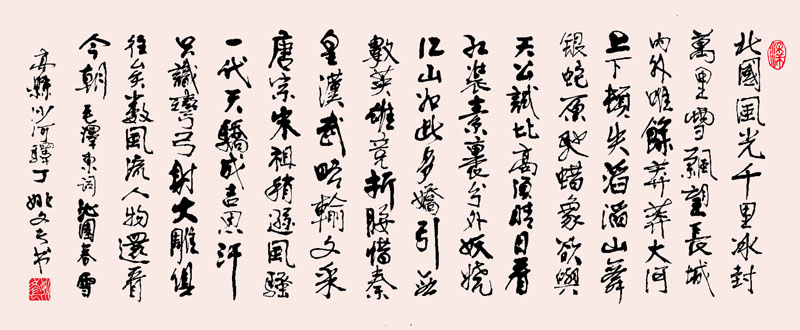 北國風光千里冰封
萬里雪飄望長城
内外唯餘莽莽大河
上下頓失滔滔山舞
銀蛇原馳蜡象欲與
天公試比高須晴日看
紅裝素裹分外妖嬈
江山如此多嬌引無
數英雄竞折腰惜秦
皇漢武略輸文采
唐宗宋祖稍遜風騷
一代天驕成吉思汗
只識彎弓射大雕俱
往矣數風流人物還看
今朝 毛澤東詞 沁園春 雪
縣沙河驛丁 姚文书